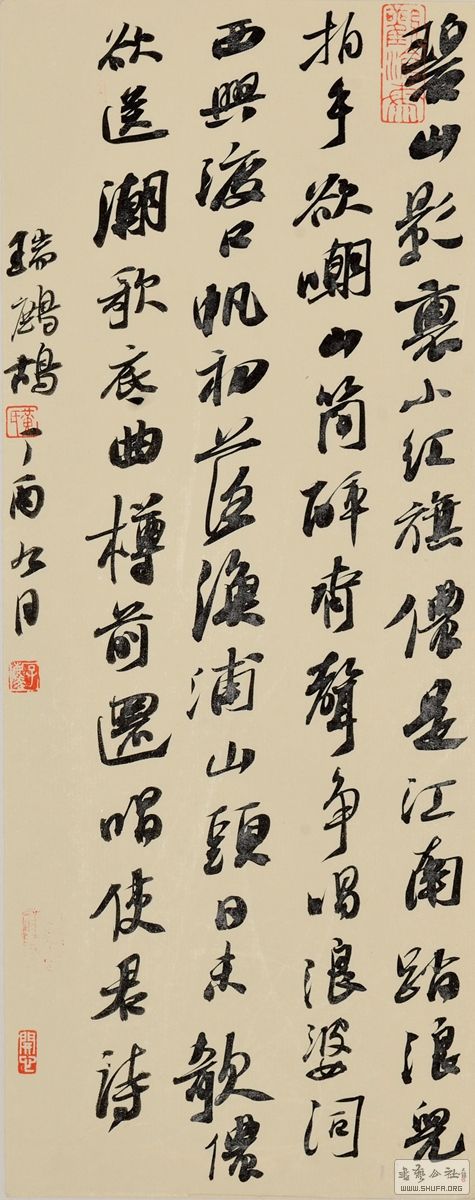 碧山影裏小紅旗儂是江南踏浪兒
拍手欲嘲山簡醉齊聲争唱浪婆詞
西興渡口帆初落漁浦山頭日未欹儂
欲送潮歌底曲樽前還唱使君詩
瑞鷓鴣
董氏
書藝公社
WWW.SHUFA.ORG